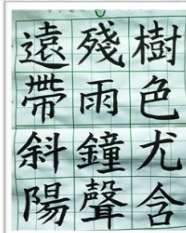 樹色尤含
殘雨鐘聲
遠帶斜陽